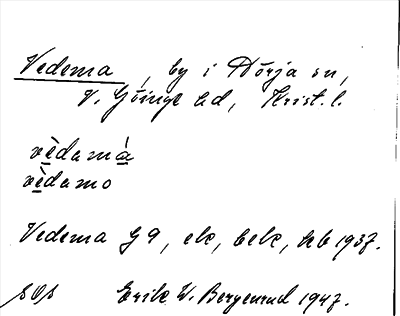 Vedema, by i Nörja sn,
V. Göinge hd, Krist. l.
vèdamá
vèdamo
Vedema G 9, ek, bebk, kb 1937.
SOS Erik W. Bergenrud 1947.